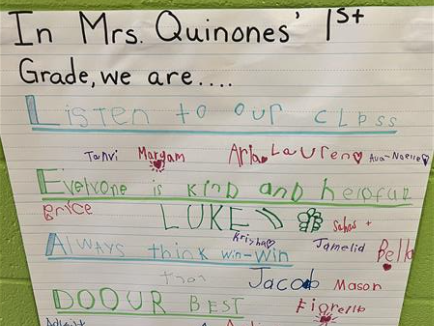 In Mrs. Quinones' 1st
Grade, we are....
Listen to our clbss
Tanvi Maryam Aria Lauren Ava-Noelle
Everyone is kind and helpful
Bryce LUKE Krisha
Always think win-win Jamelia Bella
Jacob Mason
DO OUR BEST Fiorella